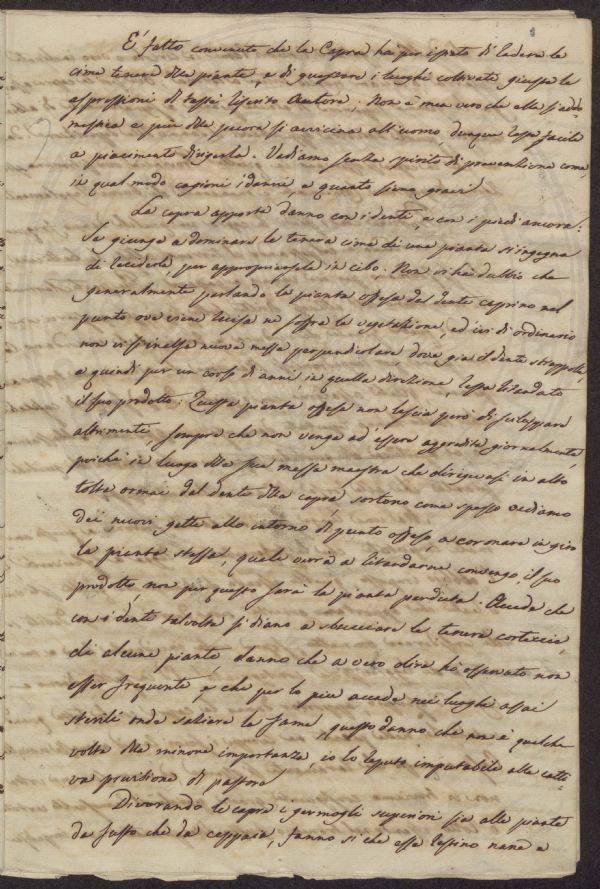 E' fatto convenuto che la Capra ha per istinto di ledere le
cime tenere delle piante, e di guastare i luoghi coltivati giusta le
espressioni di riferito Autore; Non è men vero che ella si addo
mestica e più della pecora si avvicina all'uomo, dunque facile
a piacimento dirigerla. Vediamo senza spirito di prevenzione come,
in qual modo cagioni i danni e quanto sieno gravi
La capra apporta danno con i denti, e con i piedi ancora:
Se giunge a dominare la tenera cima di una pianta s'ingegna
di reciderla, per appropriarsela in cibo. Non vi ha dubbio che
generalmente parlando la pianta offesa dal dente caprino nel
punto ove viene recisa ne soffre la vegetazione, ed ivi di ordinario
non vi si innalza nuova messa perpendicolare, dove già il dente strappolla,
e quindi per un corso di anni, in quella direzione, resta ritardato
il suo prodotto: Questa pianta offesa non lascia però di svilupparsi
altrimenti, sempre che non venga ad essere aggredita giornalmente,
poichè in luogo della sua messa maestra che in alto
tolta ormai dal dente della capra, sortono come spesso vediamo
dei nuovi getti allo intorno di punto offeso, a coronare in giro
la pianta stessa, quale verrà a ritardarne convengo, il suo
prodotto, non per questo sarà la pianta perduta. Accade che
con i denti talvolta si diano a sbucciare la tenera corteccia,
di alcune piante, danno che a vero dire ho osservato non
esser frequente e che per lo più accade nei luoghi assai
sterili onde saziare la fame, questo danno che non è qualche
volta della minore importanza, io lo reputo imputabile alla catti-
va prevISIONE di pastore
Divorando le capre i germogli superiori sia alle piante
da fusto che da ceppaia, fanno si che esse restino nane e